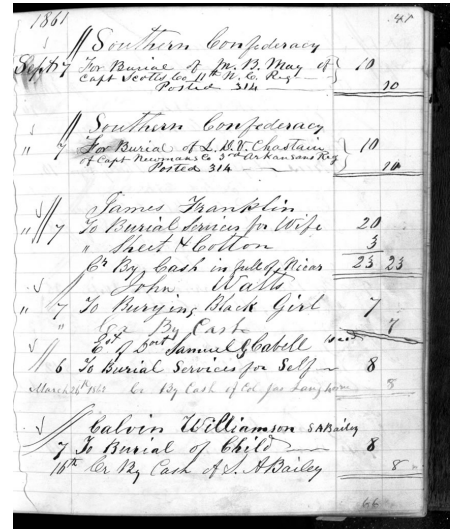 1861 47
Southern Confederacy
Sept 7 For Burial of Jn. B. May of } 10
Capt Scotts Co 11th N. C. Reg
Posted 314 10
Southern Confederacy
" 7 For Burial of L. D. V. Chastain } 10
of Capt Newmans Co 3rd Arkansans Reg
Posted 314 10
James Franklin
" 7 To Burial Services for Wife 20
" Sheet & Cotton 3
Cr By Cash in full of 23 23
John Watts
" 7 To Burying Black Girl 7
" Cr By Cash 7
Est of Doct Samuel Cabell
6 To Burial Services for Self 8
March 26th Cr By Cash of Ed Jas Langhorn 8
Calvin Williamson S A Bailey
7 To Burial of Child 8
16th Cr By Cash of S. A Bailey 8
66